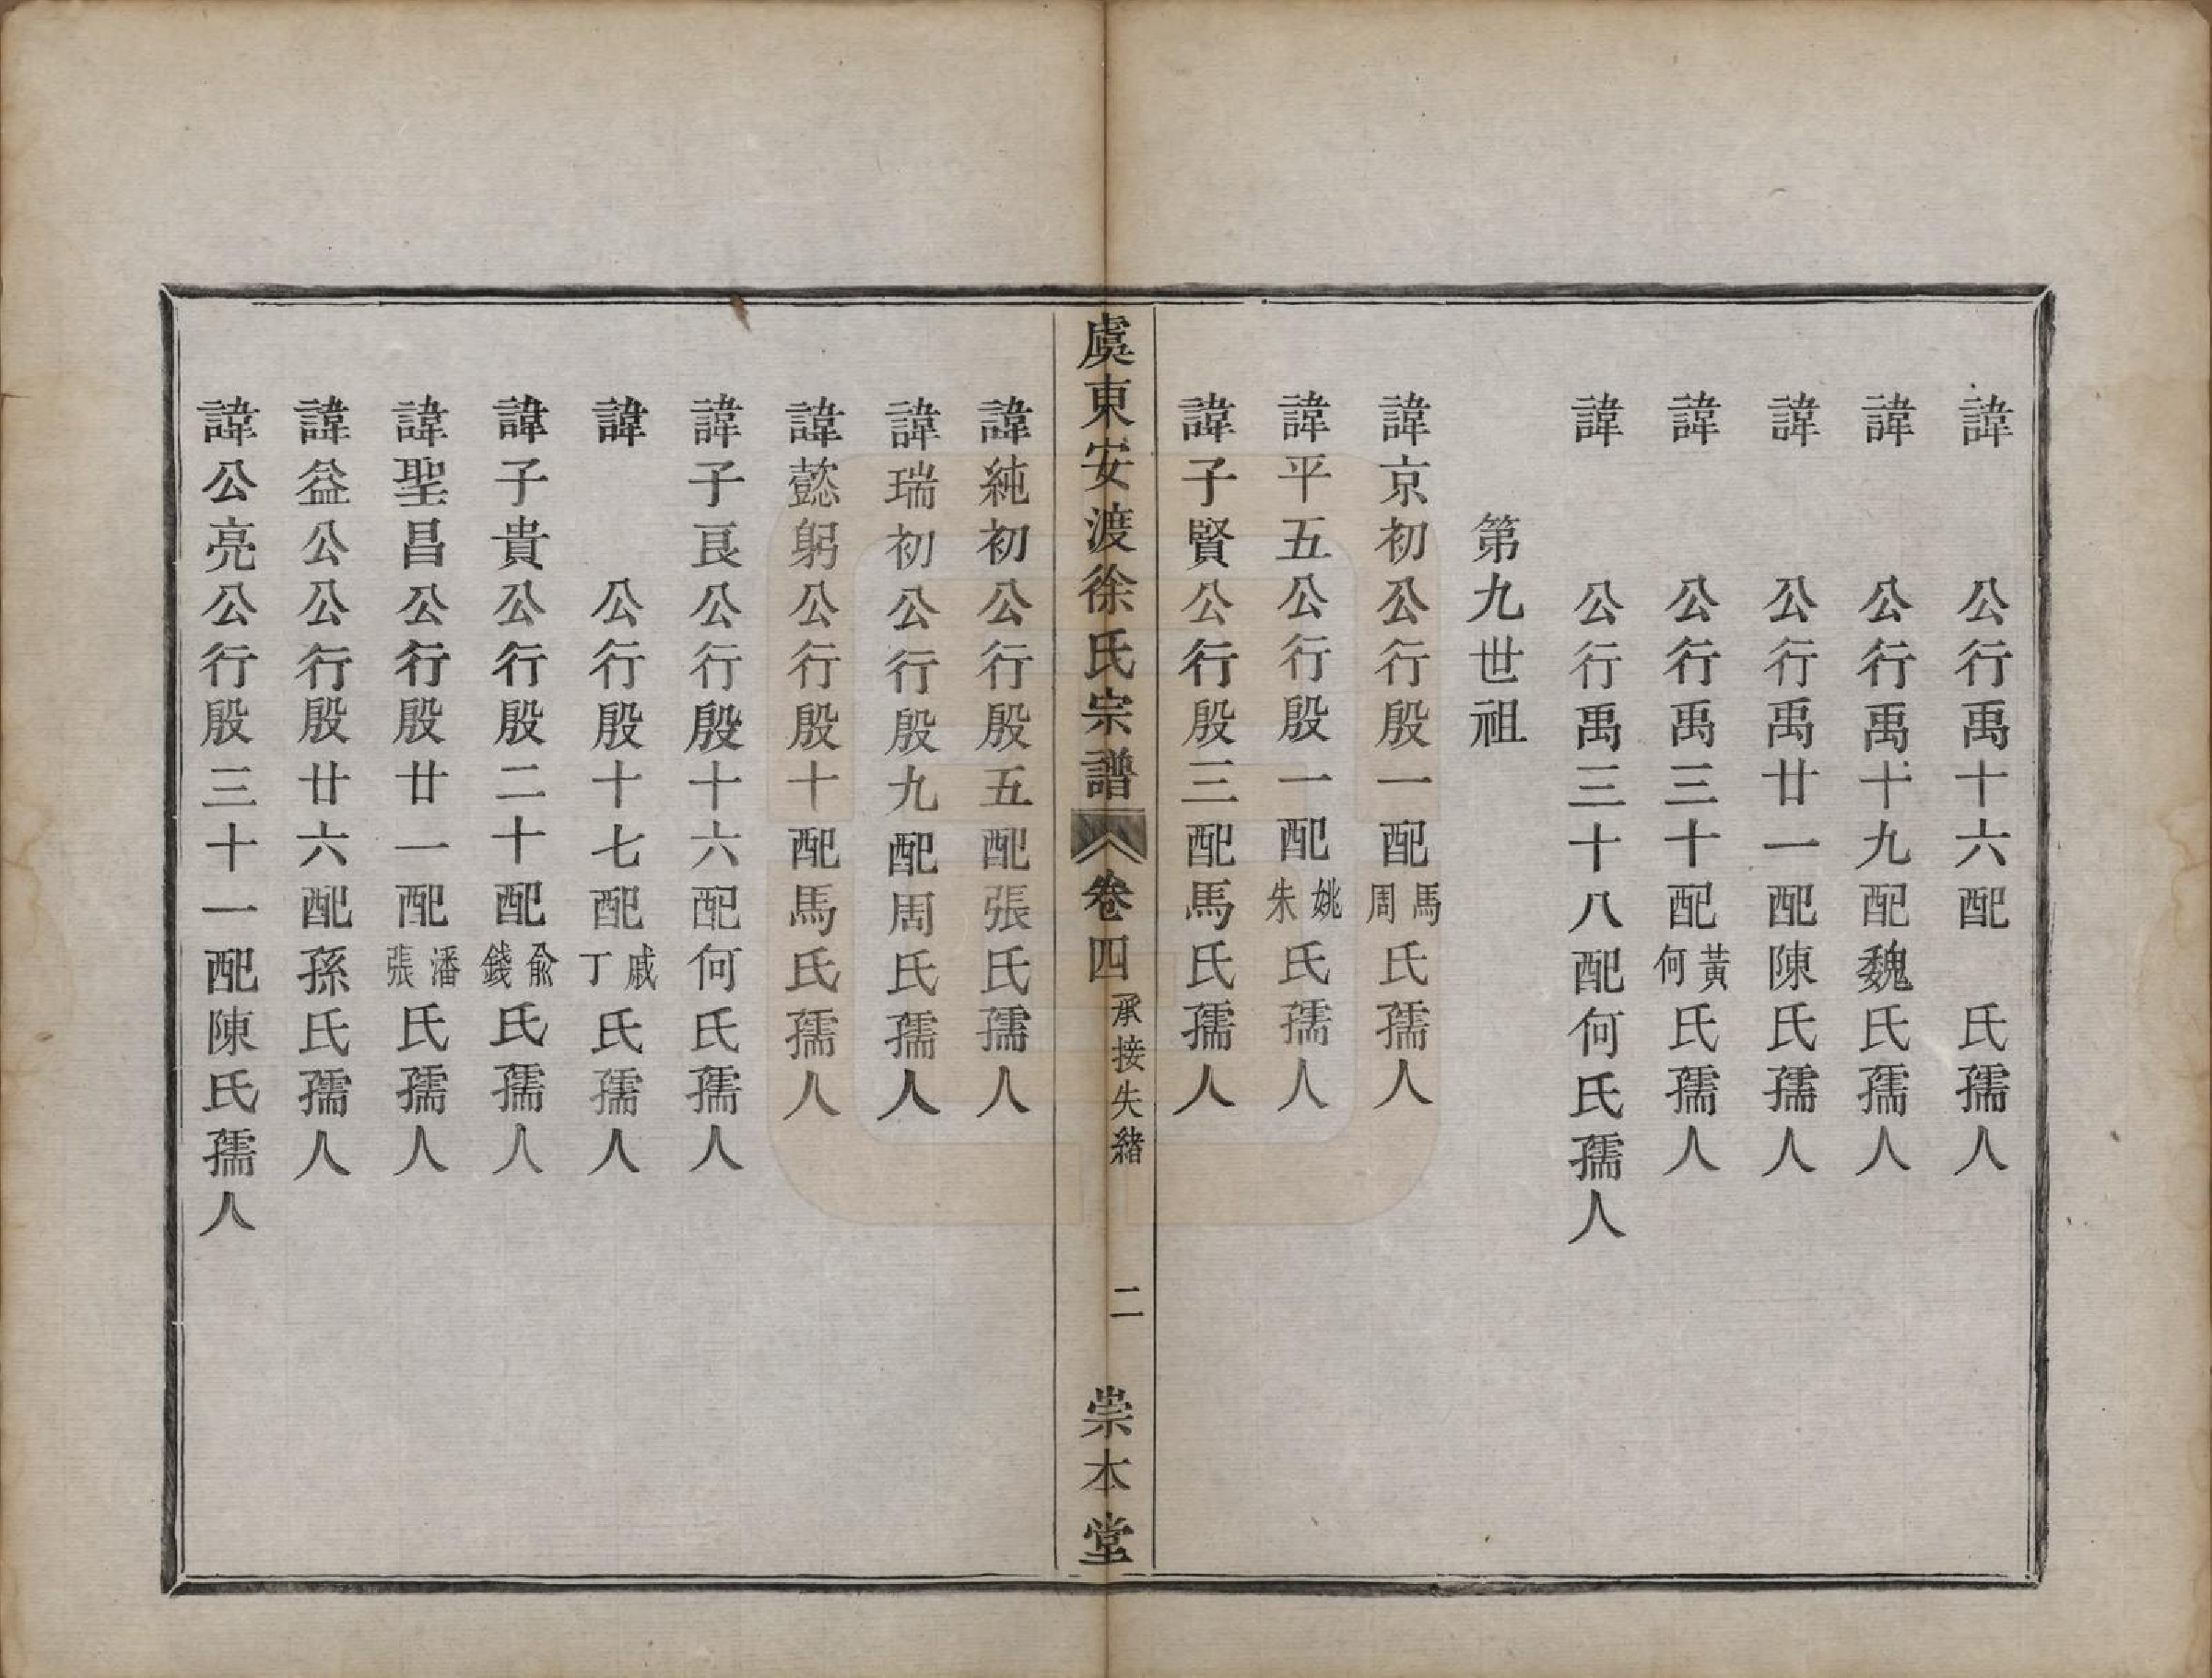 諱　　公行禹十六配　氏孺人
諱　　公行禹十九配魏氏孺人
諱　　公行禹廿一配陳氏孺人
諱　　公行禹三十配黃何氏孺人
諱　　公行禹三十八配何氏孺人
第九世祖
諱京初公行殷一配馬周氏孺人
諱平五公行殷一配姚朱氏孺人
諱子賢公行殷三配馬氏孺人
虞東安渡徐氏宗譜　卷四　承接失緒　二　崇本堂
諱純初公行殷五配張氏孺人
諱瑞初公行殷九配周氏孺人
諱懿躬公行殷十配馬氏孺人
諱子良公行殷十六配何氏孺人
諱　　公行殷十七配戚丁氏孺人
諱子貴公行殷二十配兪錢氏孺人
諱聖昌公行殷廿一配潘張氏孺人
諱益公公行殷廿六配孫氏孺人
諱公亮公行殷三十一配陳氏孺人